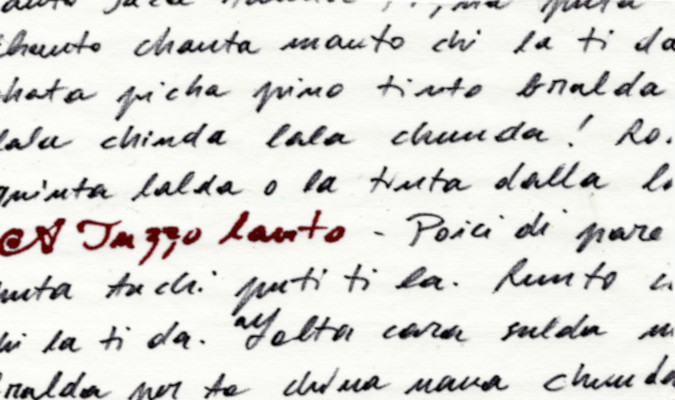 chanta manto chi la ti da
picha pino tinto bralda
lalu chinda lala chunda! Ro.
quinta lalda o la tinta dalla lo
A Tuzzo lanto - Poici di pare
tuchi puti ti la. Runto
la ti da. "Yolta cara sulda
bralda por te china nana chunda